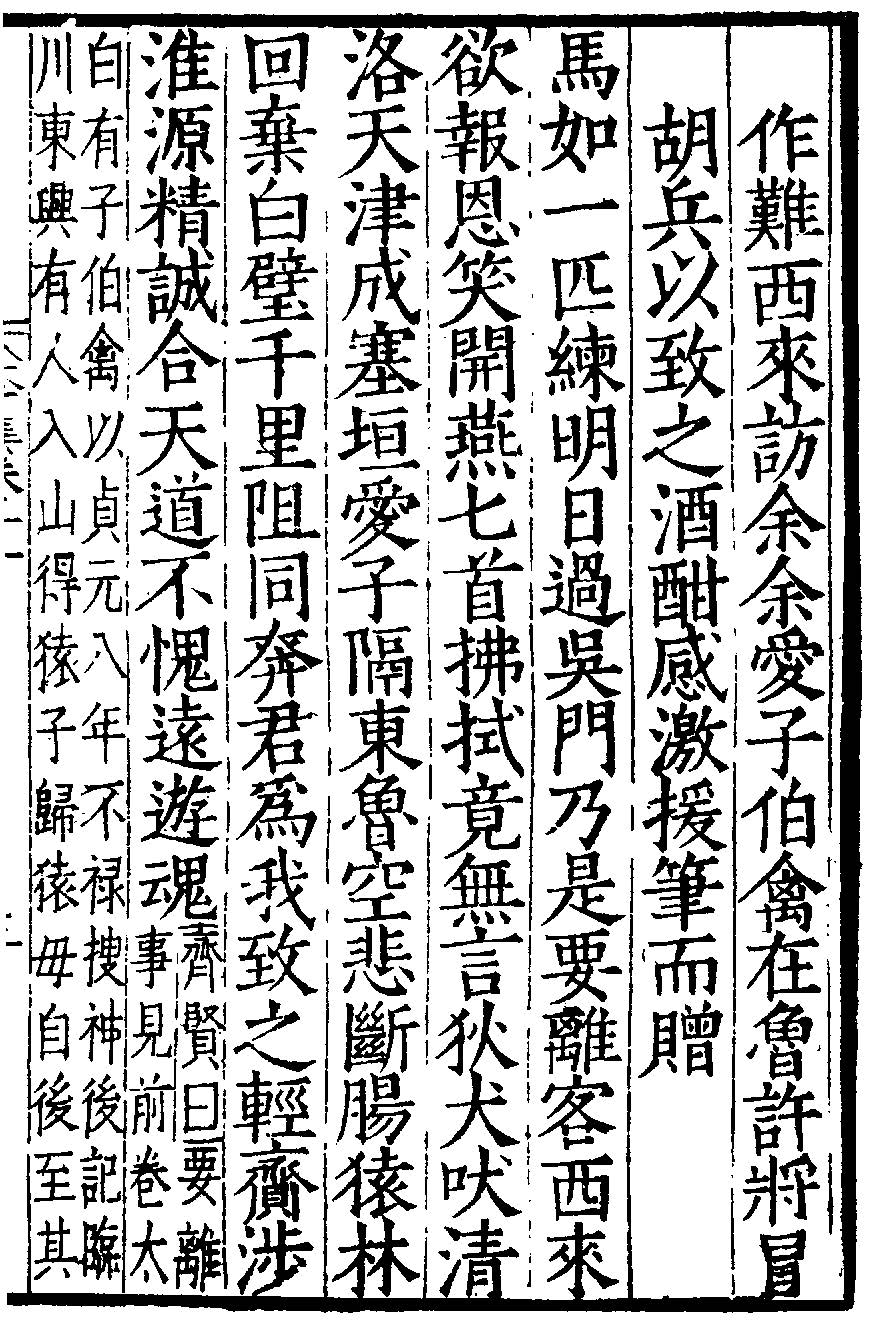 作難西來訪余余愛子伯禽在魯許將冒
胡兵以致之酒酣感激援筆而贈
馬如一匹練明日過吳門乃是要離客西來
欲報恩笑開燕七首拂拭竟無言狄犬吠清
洛天津成塞垣愛子隔東魯空悲斷腸猿林
回棄白璧千里阻同奔君爲我致之輕齎涉
淮源精誠合天道不愧遠遊魂
齊賢曰要離
事見前卷太
白有子伯禽以貞元八年不禄搜神後記臨
川東興有人入山得猿子歸猿毋自後至其